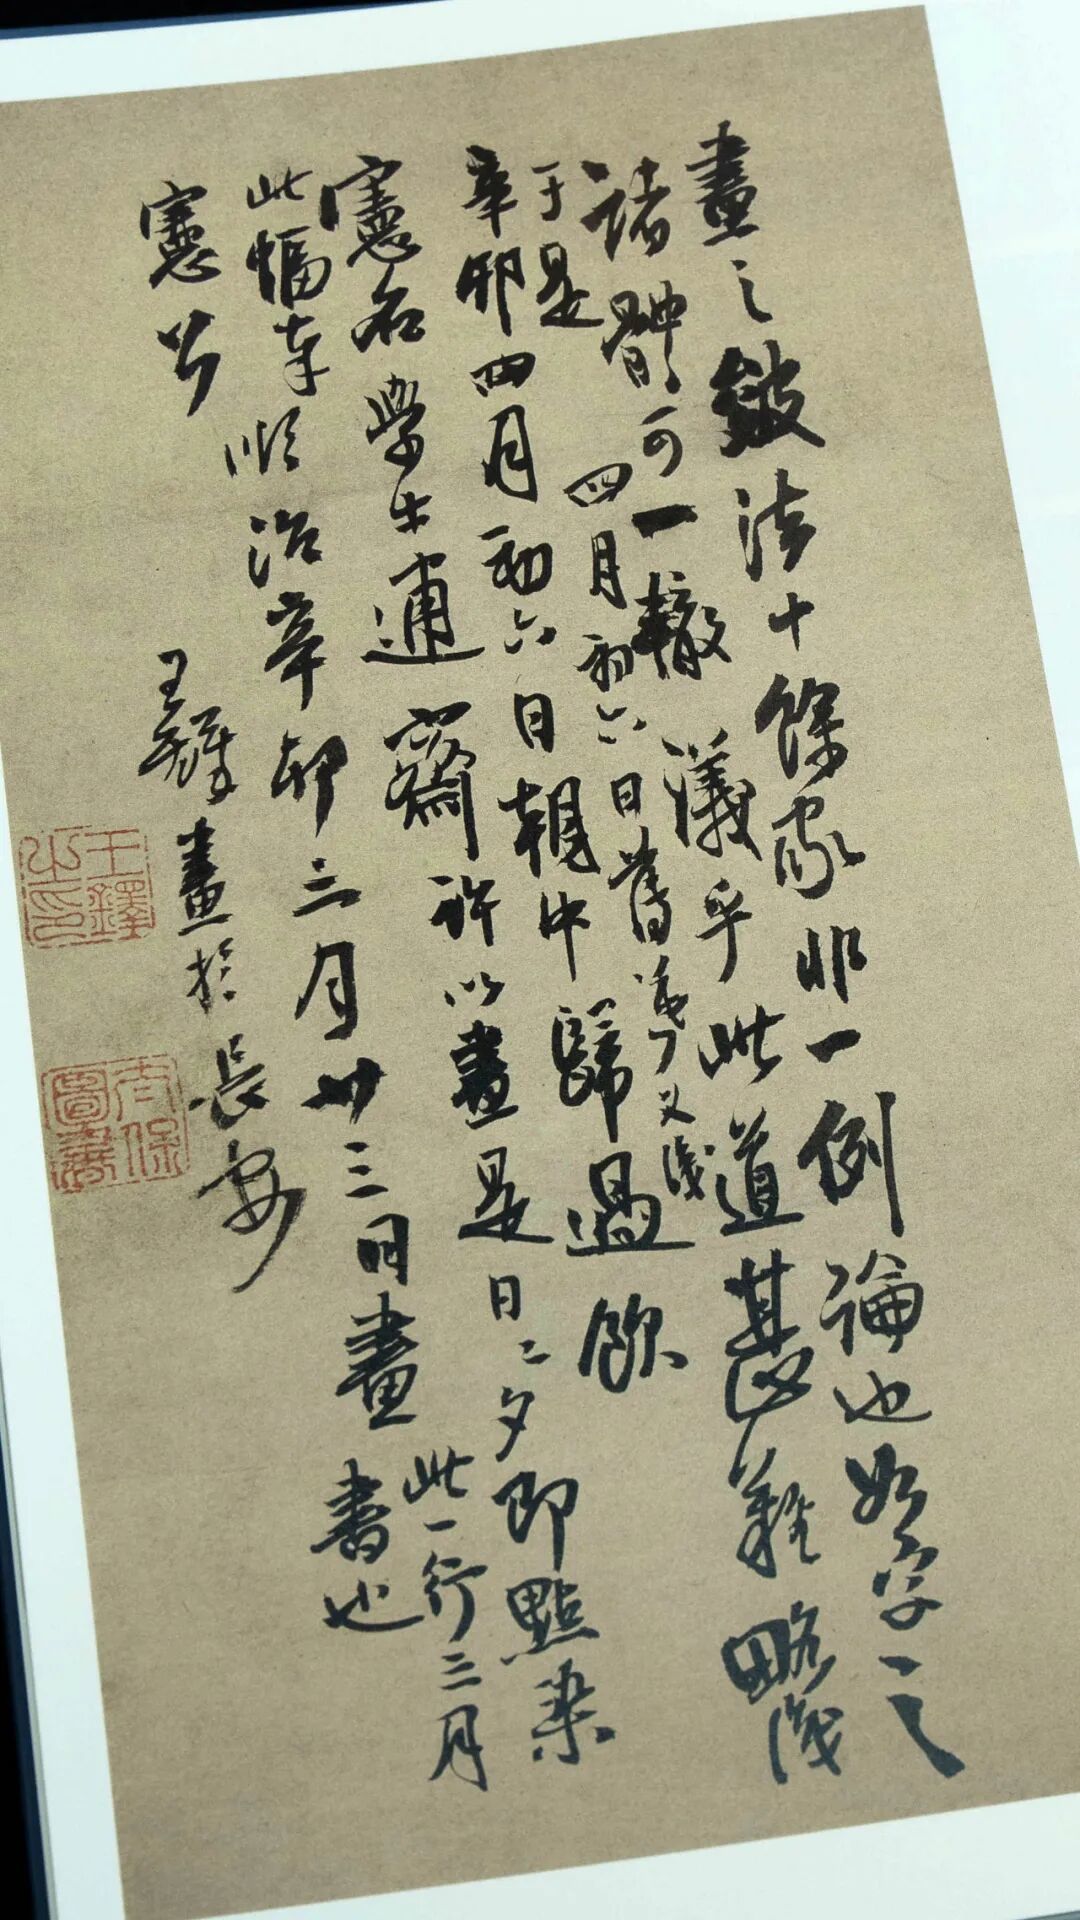 畫之皴法十餘家非一例論也如字之
諸體可一轍議乎此道甚難略識
于是
四月初六日舊
又識
辛卯四月初六日朝中歸過飲
憲石學士連齋許以畫是日二夕即點染
此幅在順治辛卯三月廿三日畫
此一行三月
書也
憲
王鐸畫於長安
王鐸之印
太保圖書